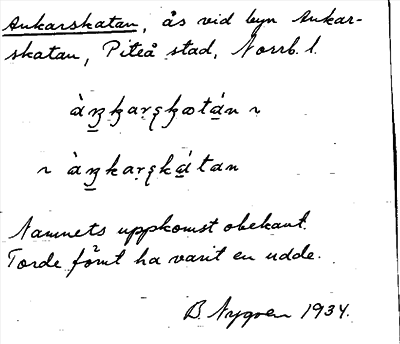 Ankarskatan, ås vid byn Ankar-
skatan, Piteå stad, Norrb. l.
~
~
Namnets uppkomst obekant.
Torde förut ha varit en udde.
B. Nygren 1934.